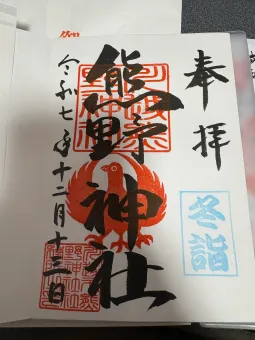 奉拝
冬詣
熊野神社
令和七年十二月十三日